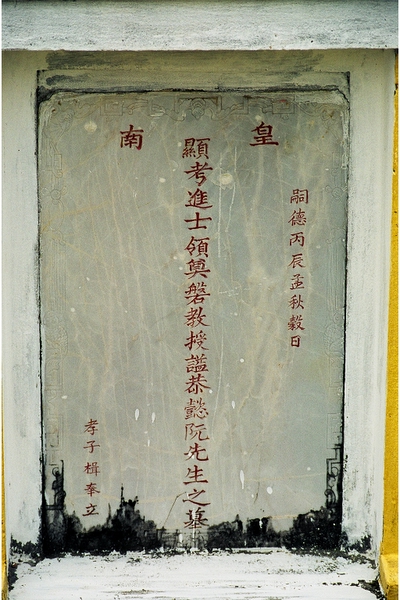 皇南
嗣德丙辰孟秋穀日
顯考進士領奠磐教授諡恭懿阮先生之墓
孝子楫奉立